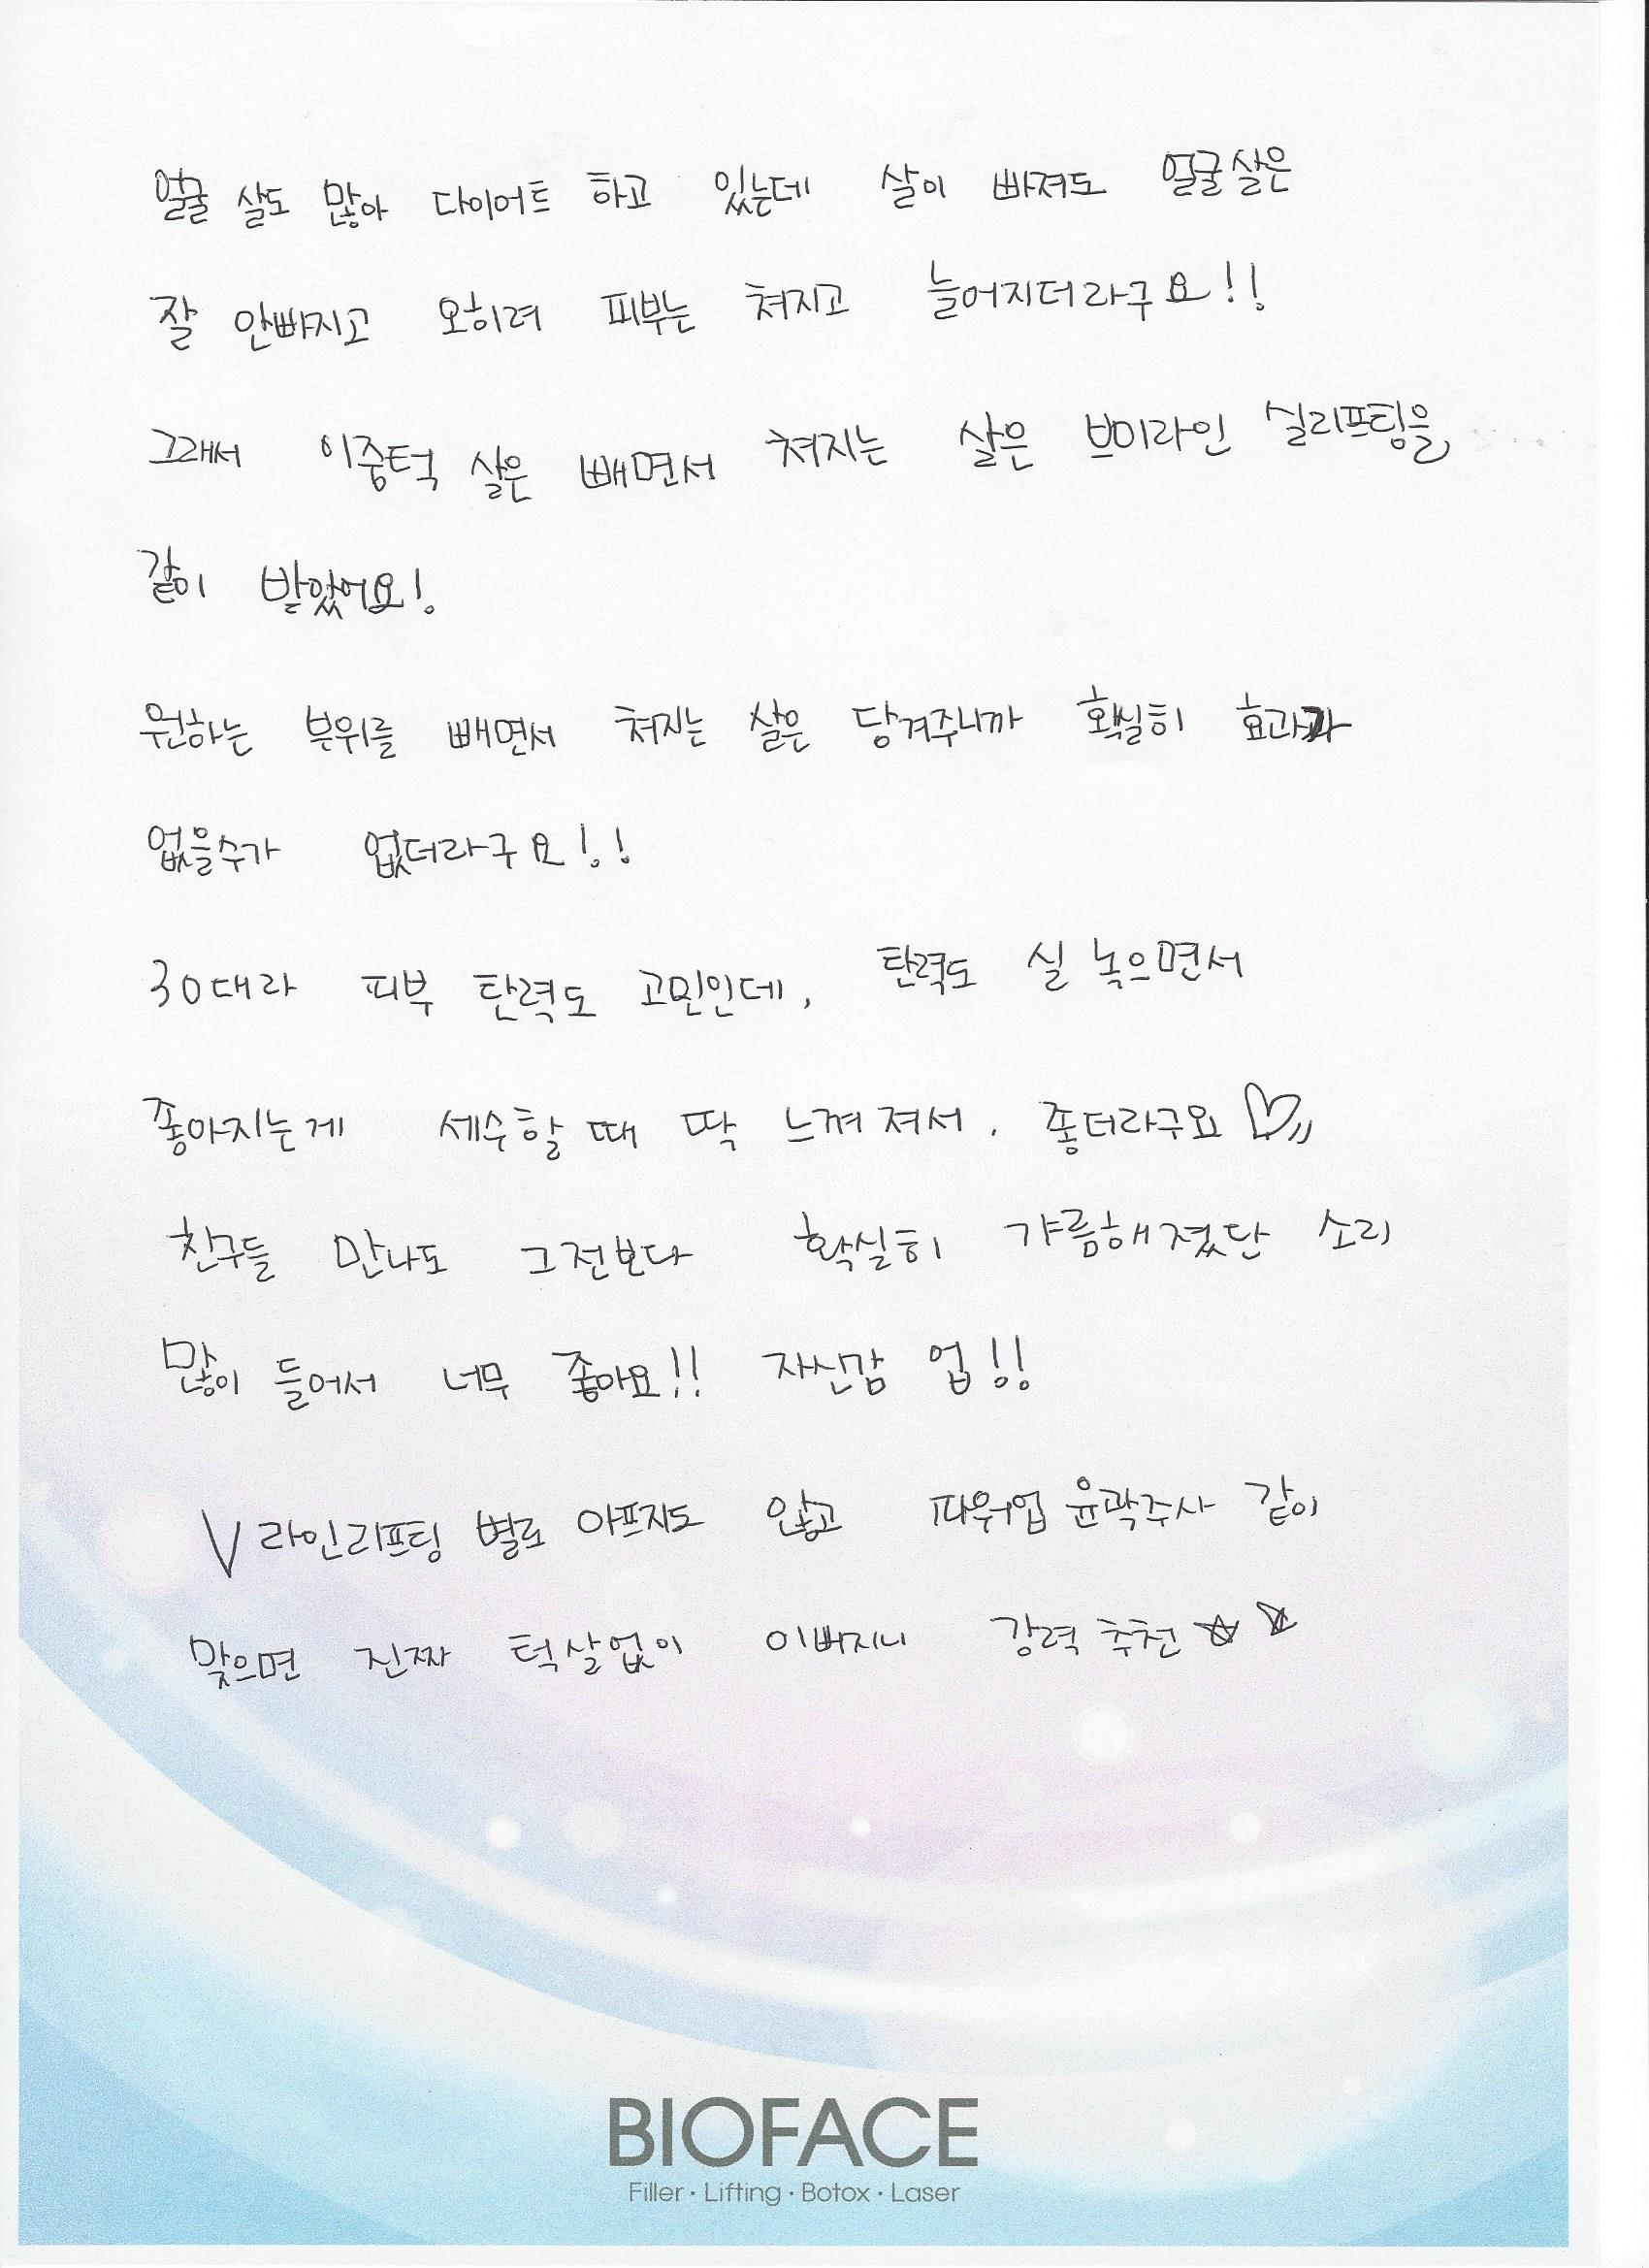 얼굴 살도 많아 다이어트 하고 있는데 살이 빠져도 얼굴살은
잘 안빠지고 오히려 피부는 쳐지고 늘어지더라구요!!
그래서 이중턱 살은 빼면서 쳐지는 살은 브이라인 실리프팅을
같이 받았어요!
원하는 부위를 빼면서 쳐지는 살은 당겨주니까 확실히 효과가
없을수가 없더라구요!!
30대라 피부 탄력도 고민인데, 탄력도 실 녹으면서
좋아지는게 세수할때 딱 느껴져서. 좋더라구요♡〃
친구들 만나도 그전보다 확실히 갸름해졌단 소리
많이 들어서 너무 좋아요!! 자신감 업!!
V라인리프팅 별로 아프지도 않고 파워업 윤곽주사 같이
맞으면 진짜 턱살없이 이뻐지니 강력추천☆☆
BIOFACE
Filler · Lifting · Botox · Laser